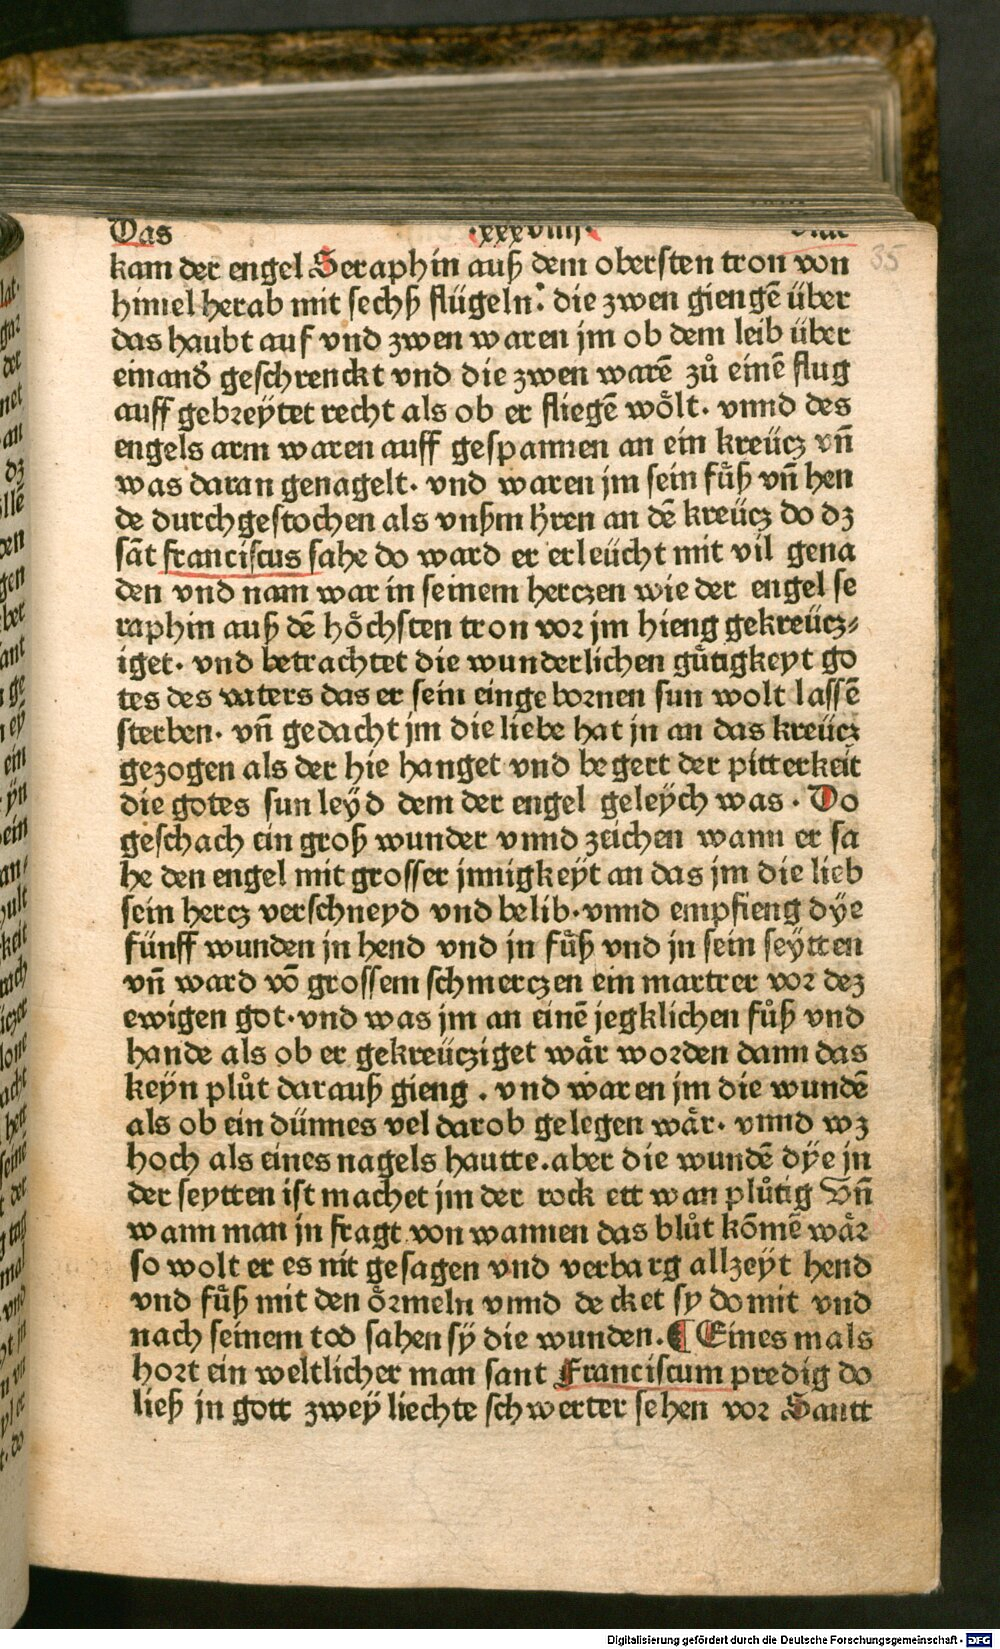 Das .xxxviiij.
35
kam der engel Seraphin auß dem obersten tron von
himel herab mit sechß flügeln. die zwen giengē über
das haubt auf vnd zwen waren jm ob dem leib über
einand̄ geschrenckt vnd die zwen warē zů einē flug
auff gebreytet recht als ob er fliegē wölt. vnnd des
engels arm waren auff gespannen an ein kreücz vn̄
was daran genagelt. vnd waren jm sein fůß vn̄ hen
de durchgestochen als vnßm h̄ren an dē kreücz do dz
sāt franciscus sahe do ward er erleücht mit vil gena
den vnd nam war in seinem herczen wie der engel se
raphin auß dē höchsten tron vor jm hieng gekreücz⸗
iget. vnd betrachtet die wunderlichen gůtigkeyt go
tes des vaters das er sein eingebornen sun wolt lassē
sterben. vn̄ gedacht jm die liebe hat jn an das kreücz
gezogen als der hie hanget vnd begert der pitterkeit
die gotes sun leyd dem der engel geleych was. Do
geschach ein groß wunder vnnd zeichen wann er sa
he den engel mit grosser jnnigkeyt an das jm die lieb
sein hercz verschneyd vnd belib. vnnd empfieng dye
fünff wunden jn hend vnd jn fůß vnd jn sein seytten
vn̄ ward vō grossem schmerczen ein martrer vor dez
ewigen got. vnd was jm an einē jegklichen fůß vnd
hande als ob er gekreücziget wär worden dann das
keyn plůt darauß gieng. vnd waren jm die wundē
als ob ein dünnes vel darob gelegen wär. vnnd wz
hoch als eines nagels hautte. aber die wundē dye jn
der seytten ist machet jm der rock ettwan plůtig Vn̄
wann man jn fragt von wannen das blůt kōmē wär
so wolt er es nit gesagen vnd verbarg allzeyt hend
vnd fůß mit den örmeln vnnd decket sy domit vnd
nach seinem tod sahen sy die wunden. ¶ Eines mals
hort ein weltlicher man sant Franciscum predig do
ließ jn gott zwey liechte schwerter sehen vor Santt
Digitalisierung gefördert durch die Deutsche Forschungsgemeinschaft - DFG